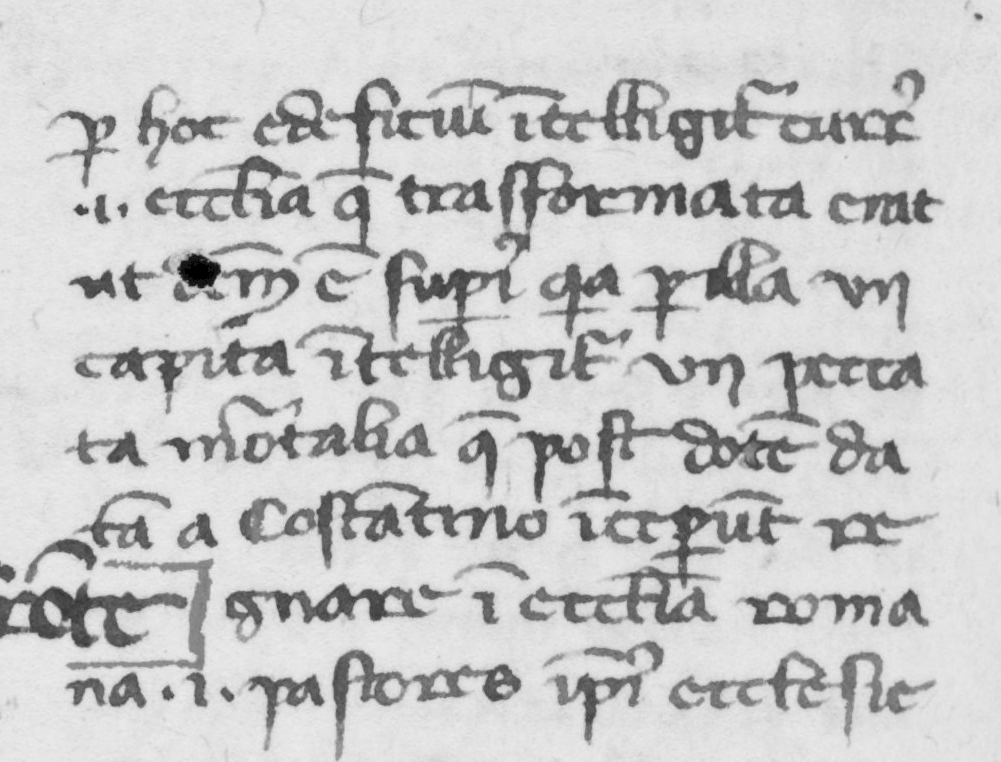 ꝑ hoc edeficiū ītelligit᷑ curr᷒
.i. ecclīa q̄ trasformata erat
ut dc̄m ē suꝑi᷒ qa ꝑ illa vii
capita ītelligit᷑ vii pecca
ta mōrtalia q̄ post dotē da
tā a Costātino īceꝑūt re
gnare ī ecclīa roma
na .i. pastores ip̄i᷒ ecclesie